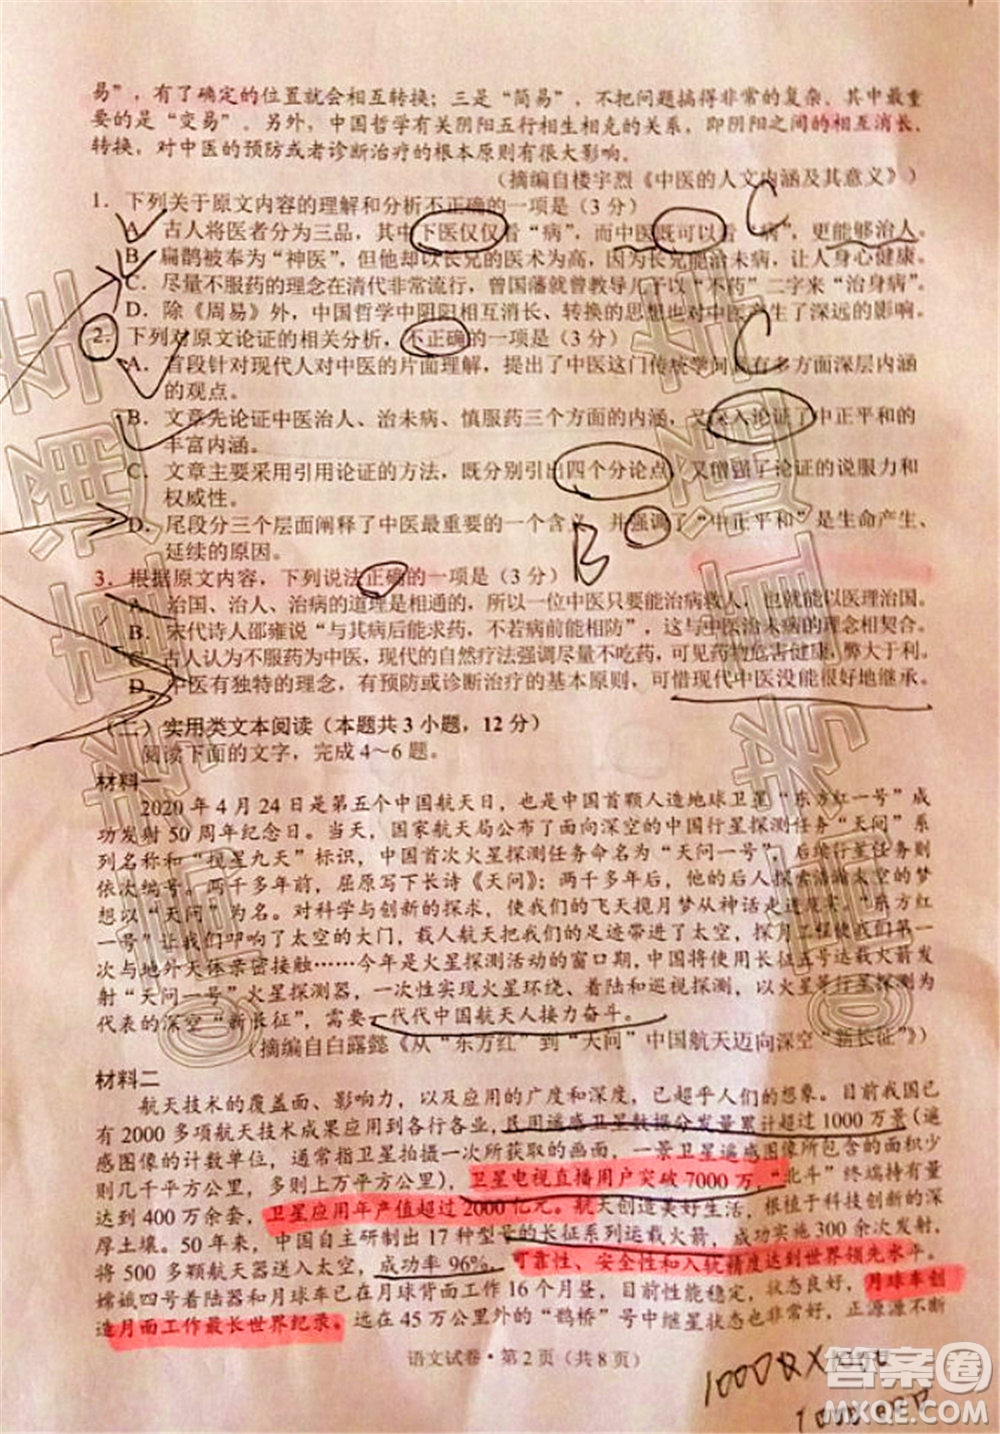 易”，有了确定的位置就会相互转换；三是“简易”，不把问题搞得非常的复杂。其中最重
要的是“变易”。另外，中国哲学有关阴阳五行相生相克的关系，即阴阳之间的相互消长、
转换，对中医的预防或者诊断治疗的根本原则有很大影响。
（摘编自楼宇烈《中医的人文内涵及其意义》）
1．下列关于原文内容的理解和分析不正确的一项是（3 分）
C
A．古人将医者分为三品，其中下医仅仅看“病”，而中医既可以看“病”，更能够治人。
B．扁鹊被奉为“神医”，但他却以长兄的医术为高，因为长兄能治未病，让人身心健康。
C．尽量不服药的理念在清代非常流行，曾国藩就曾教导儿子以“不药”二字来“治身病”。
D．除《周易》外，中国哲学中阴阳相互消长、转换的思想也对中医产生了深远的影响。
2．下列对原文论证的相关分析，不正确的一项是（3 分）
C
A．首段针对现代人对中医的片面理解，提出了中医这门传统学问具有多方面深层内涵
的观点。
B．文章先论证中医治人、治未病、慎服药三个方面的内涵，又深入论证了中正平和的
丰富内涵。
C．文章主要采用引用论证的方法，既分别引出四个分论点，又增强了论证的说服力和
权威性。
D．尾段分三个层面阐释了中医最重要的一个含义，并强调了“中正平和”是生命产生、
延续的原因。
B
3．根据原文内容，下列说法正确的一项是（3 分）
A．治国、治人、治病的道理是相通的，所以一位中医只要能治病救人，也就能以医理治国。
B．宋代诗人邵雍说“与其病后能求药，不若病前能相防”，这与中医治未病的理念相契合。
C．古人认为不服药为中医，现代的自然疗法强调尽量不吃药，可见药物危害健康，弊大于利。
D．中医有独特的理念，有预防或诊断治疗的基本原则，可惜现代中医没能很好地继承。
（二）实用类文本阅读（本题共 3 小题，12 分）
阅读下面的文字，完成 4～6 题。
材料一
2020 年 4 月 24 日是第五个中国航天日，也是中国首颗人造地球卫星“东方红一号”成
功发射 50 周年纪念日。当天，国家航天局公布了面向深空的中国行星探测任务“天问”系
列名称和“揽星九天”标识，中国首次火星探测任务命名为“天问一号”，后续行星任务
依次编号。两千多年前，屈原写下长诗《天问》；两千多年后，航天人把探索浩瀚星空的梦
想以“天问”为名。对科学与创新的探求，使我们的飞天揽月梦从神话走进现实。“东方红
一号”让我们叩响了太空的大门，载人航天使中华民族迈进了太空，探月工程使我们首次
与地外天体亲密接触……今年是火星探测活动的窗口期，中国将使用长征五号运载火箭发
射“天问一号”火星探测器，一次性完成火星环绕、着陆和巡视探测，以火星和行星际为
代表的深空“新长征”，需要一代代中国航天人接力奋斗。
（摘编自白露懿《从“东方红”到“天问”中国航天迈向深空“新长征”》）
材料二
航天技术的覆盖面、影响力，以及应用的广度和深度，已超乎人们的想象。目前我国已
有 2000 多项航天技术成果应用到各行各业，民用遥感卫星数据分发量累计超过 1000 万景（遥
感图像的计数单位，通常指卫星拍摄一次所获取的画面，一景卫星遥感图像所包含的面积少
则几千平方公里，多则上万平方公里），卫星电视直播用户突破 7000 万，“北斗”终端持有量
达到 400 万余套，卫星应用年产值超过 2000 亿元。航天创造美好生活，根植于科技创新的深
厚土壤。50 年来，中国自主研制出 17 种型号的长征系列运载火箭，成功实施 300 余次发射，
将 500 多颗航天器送入太空，成功率 96%，可靠性、安全性和入轨精度达到世界领先水平。
嫦娥四号着陆器和月球车已在月球背面工作 16 个月昼，目前性能稳定，状态良好，月球车创
造月面工作最长世界纪录。远在 45 万公里外的“鹊桥”号中继星状态也非常好，正源源不断
语文试卷·第 2 页（共 8 页）
答案圈
MXQE.COM